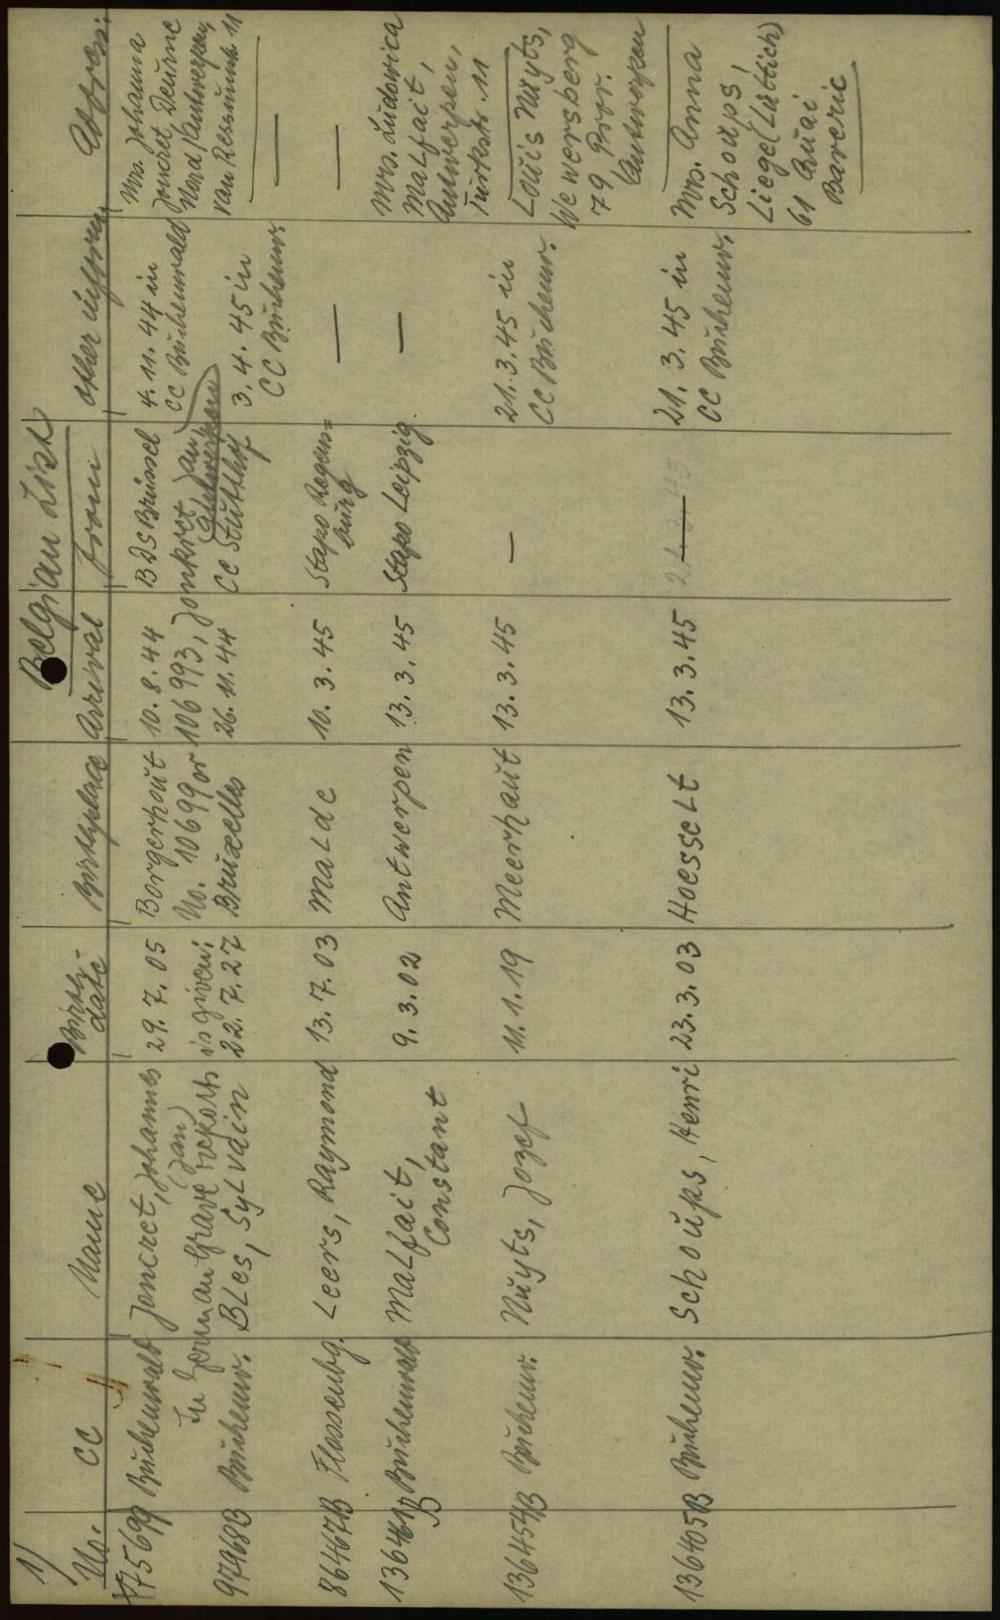 1/
Belgian List
No. CC Name Birth-date Birthplace Arrival from other inform. Address:
75699 Buchenwald Joncret, Johannes (Jan) 29.7.05 Borgerhout 10.8.44 BDS Brüssel 4.11.44 in CC Buchenwald Mrs. Johanna Joncret, Deurne Nord/Antwerpen, van 11
In German Grave reports is given: No. 10699 or 106993, Jonkret Jan, Antwerpen
97968B Buchenw. Bles, Sylvain 22.7.27 Bruxelles 26.11.44 CC Stutthof 3.4.45 in CC Buchenw. —
86467B Flossenbg. Leers, Raymond 13.7.03 Malde 10.3.45 Stapo Regens=burg — —
136461B Buchenwald Malfait, Constant 9.3.02 Antwerpen 13.3.45 Stapo Leipzig — Mrs. Ludowica Malfait, Antwerpen, Turkstr. 11
136454B Buchenw. Nuyts, Jozef 11.1.19 Meerhaut 13.3.45 — 21.3.45 in CC Buchenw. Louis Nuyts, Wewersberg 79 Prov. Antwerpen
136405B Buchenw. Schoups, Henri 23.3.03 Hoesselt 13.3.45 — 21.3.45 in CC Buchenw. Mrs. Anna Schoups, Liege (Lüttich) 61 Quai Baveric